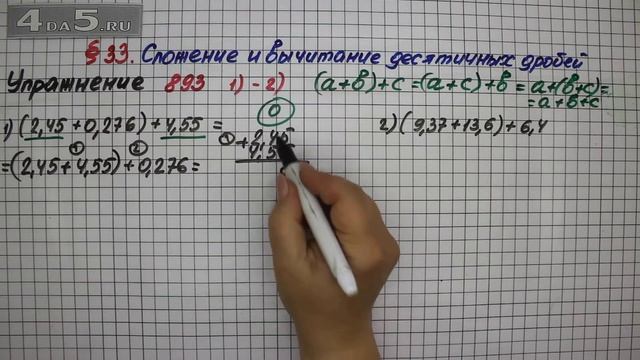 4DA5.RU
§33. Сложение и вычитание десятичных дробей
Упражнение 893 1)-2) (a+b)+c=(a+c)+b=a+(b+c)=
=a+b+c
0
1) (2,45+0,276)+4,55=
=(2,45+4,55)+0,276=
① ②
① + 2,45
4,5
2) (9,37+13,6)+6,4